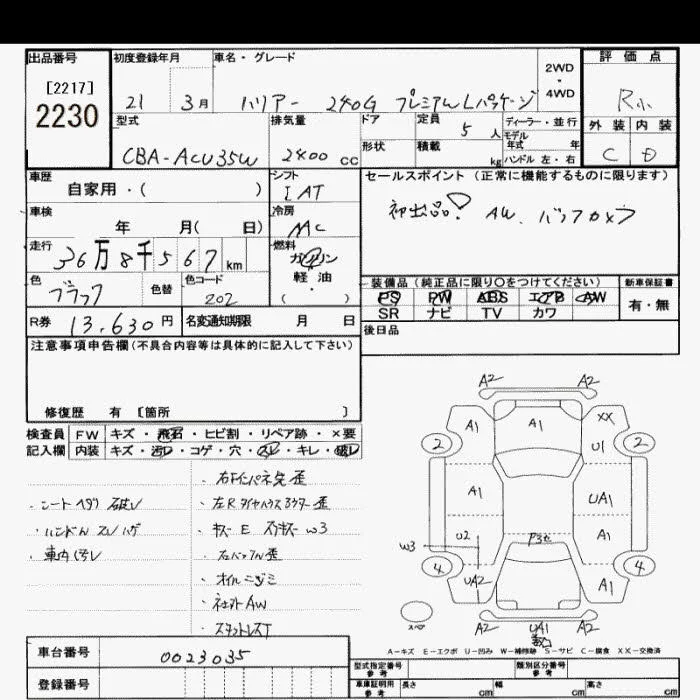 出品番号
[2217]
2230
初度登録年月
21 3月
車名・グレード
ハリアー 240G プレミアムLパッケージ
2WD
・
4WD
評価点
R小
外装 内装
C D
型式
CBA-ACU35W
排気量
2400 CC
ドア
形状
定員 5 人
積載 kg
ディーラー・並行
モデル年式 年
ハンドル 左・右
車歴
自家用・( )
シフト
IAT
セールスポイント(正常に機能するものに限ります)
初出品! AW. バックカメラ
車検
年 月( 日)
冷房
AAC
走行
36万8千567km
燃料
ガソリン
・
軽・油
( )
色
ブラック
色替
色コード
202
装備品(純正品に限り〇をつけてください)
PS PW ABS エアB AW
SR ナビ TV カワ
新車保証書
有・無
R券 13,630円
名変通知期限 月 日
後日品
注意事項申告欄(不具合内容等は具体的に記入して下さい)
修復歴 有 [箇所 ]
検査員記入欄
FW キズ・飛石・ヒビ割・リペア跡・×要
内装 キズ・汚れ・コゲ・穴・スレ・キレ・破れ
・シートヘタリ 破れ
・ハンドル スレ ハゲ
・車内 汚レ
・左R タイヤハウス 歪
・キズ E スリキズ W3
・右バックパネル 歪
・オイルニジミ
・社外AW
A2 A2
A1 A1 XX
2 U1 2
A1 UA1
U2 P3セ A1
W3
4 UA2 A1 4
スペア
A2 UA1 A2
A-キズ E-エクボ U-凹み W-補修跡 S-サビ C-腐食 XX-交換済
車台番号 0023035
登録番号
型式指定番号
参考
類別区分番号
参考
車庫証明用
参考
長さ cm 幅 cm 高さ cm